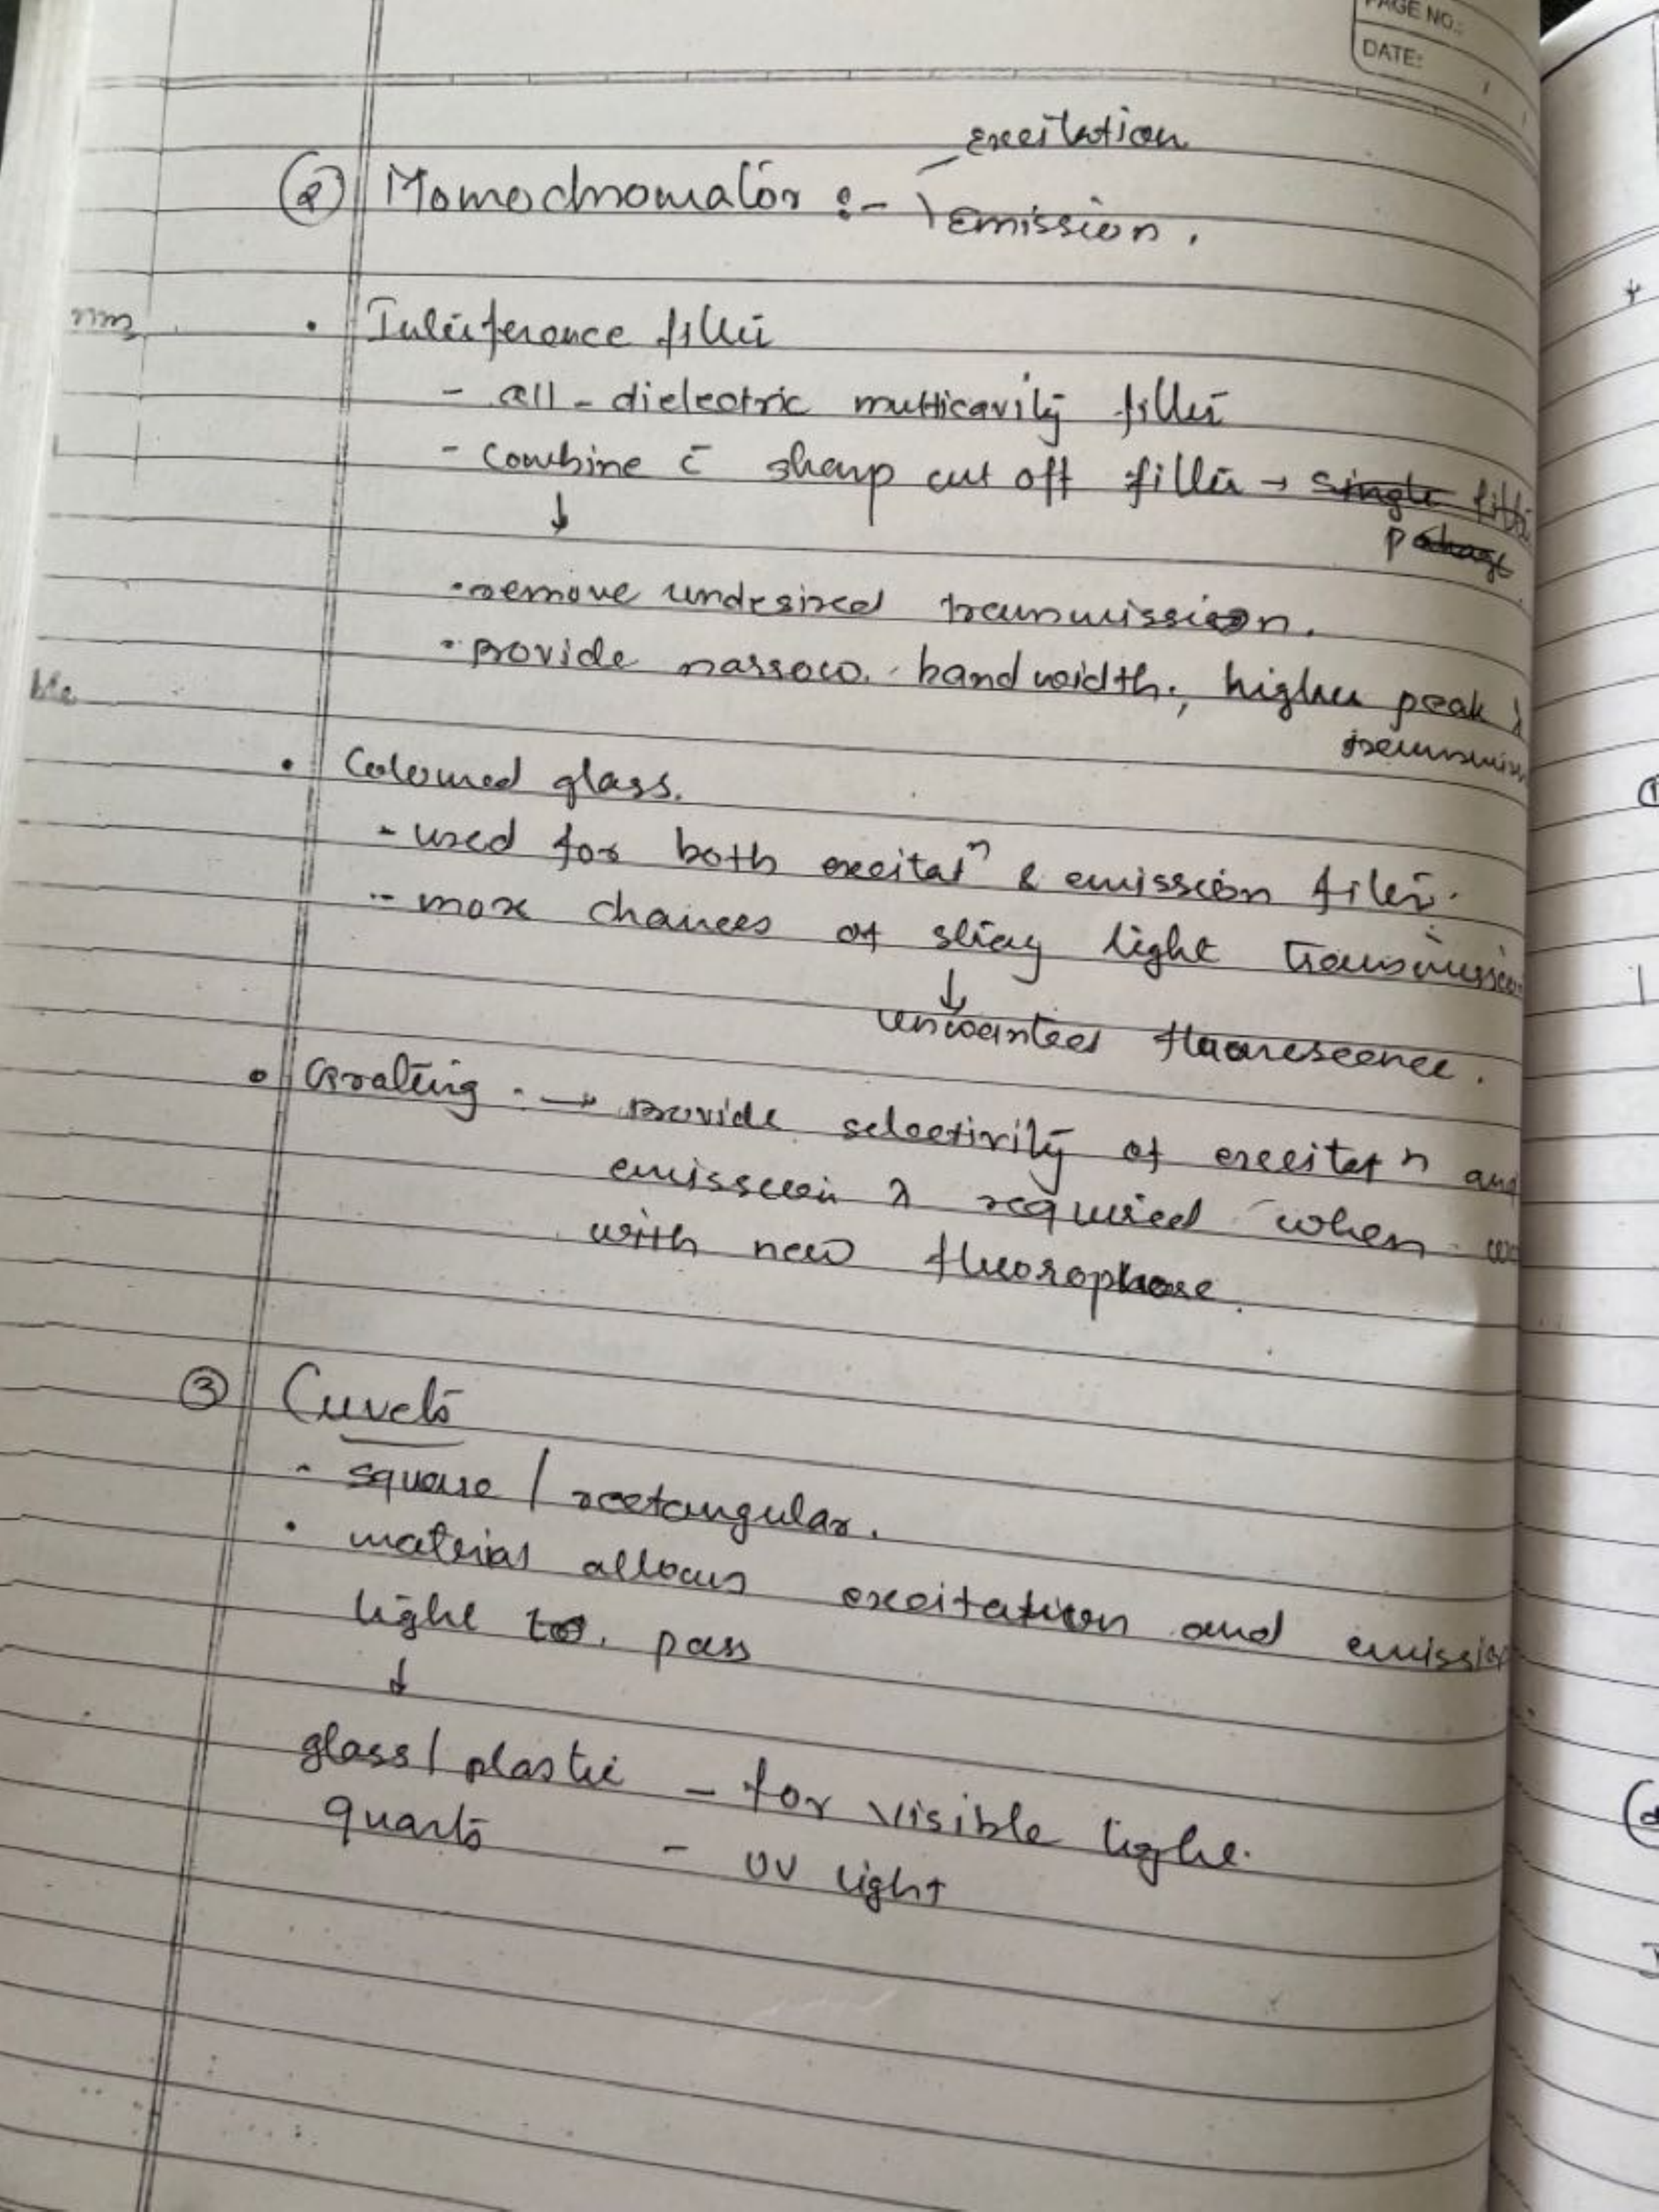 PAGE NO.:
DATE:
excitation
② Monochromator :- emission.
nm
• Interference filter
- all-dielectric multicavity filter
- Combine c̄ sharp cut off filter → single filter
↓ package
• remove undesired transmission.
• provide narrow bandwidth, higher peak λ
ble
• Coloured glass.
- used for both excitatⁿ & emission filter.
- more chances of stray light transmission
↓
unwanted fluorescence.
• Grating → provide selectivity of excitatⁿ and
emission λ required when
with new fluorophore.
③ Cuvets
- square / rectangular.
• material allows excitation and emission
light to pass
↓
glass / plastic - for visible light.
quartz - UV light